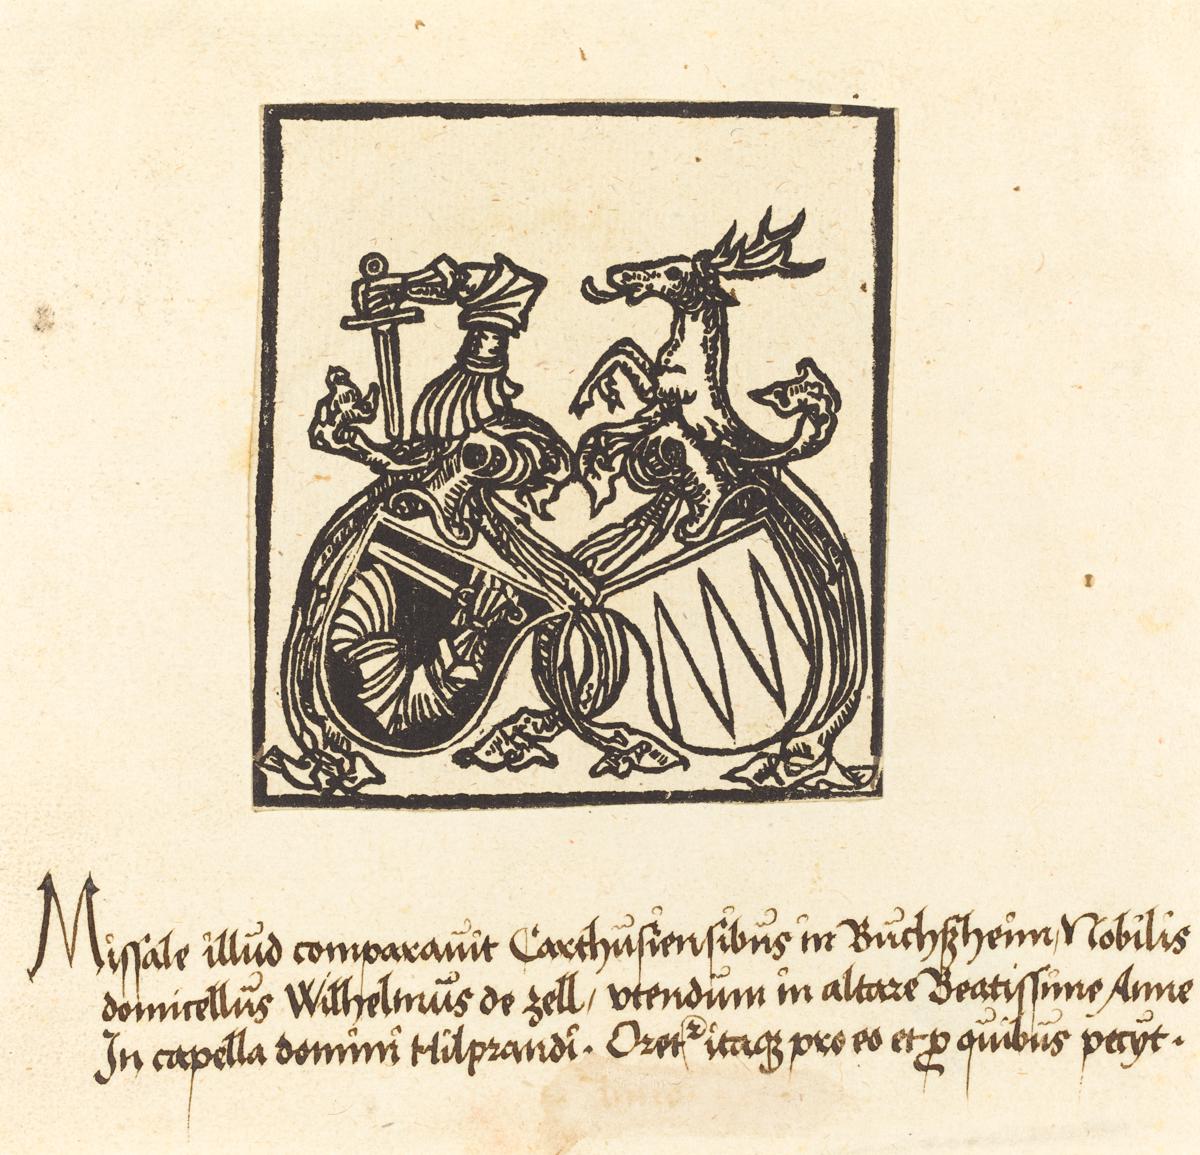 Missale illud comparauit Carthusiensibus in Buchßheim / Nobilis
domicellus Wilhelmus de zell / vtendum in altare Beatissime Anne
In capella domini Hilprandi · Oretr itaqꝫ pro eo et ꝓ quibus petyt ·